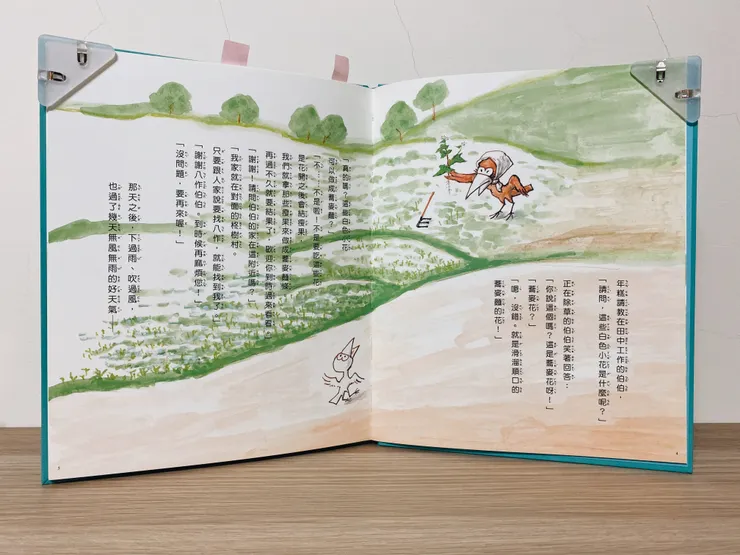 年糕請教在田中工作的伯伯，
「請問，這些白色小花是什麼呢？」
正在除草的伯伯笑著回答：
「你說這個嗎？這是蕎麥花呀！」
「蕎麥花？」
「嗯，沒錯。就是滑溜順口的
蕎麥麵的花！」
「真的嗎？這些白色小花
可以做成蕎麥麵？」
「不……不是啦！不是要吃這些花，
是花開之後會結瘦果，
我們就拿那些瘦果來做成蕎麥麵條。
再過不久就要結果了，歡迎你到時過來看看。」
「謝謝，請問伯伯的家在這附近嗎？」
「我家就在對面的柊樹村。
只要跟人家說要找八作，就能找到我了。」
「謝謝八作伯伯，到時候再麻煩您！」
「沒問題，要再來喔！」
那天之後，下過雨、吹過風，
也過了幾天無風無雨的好天氣——